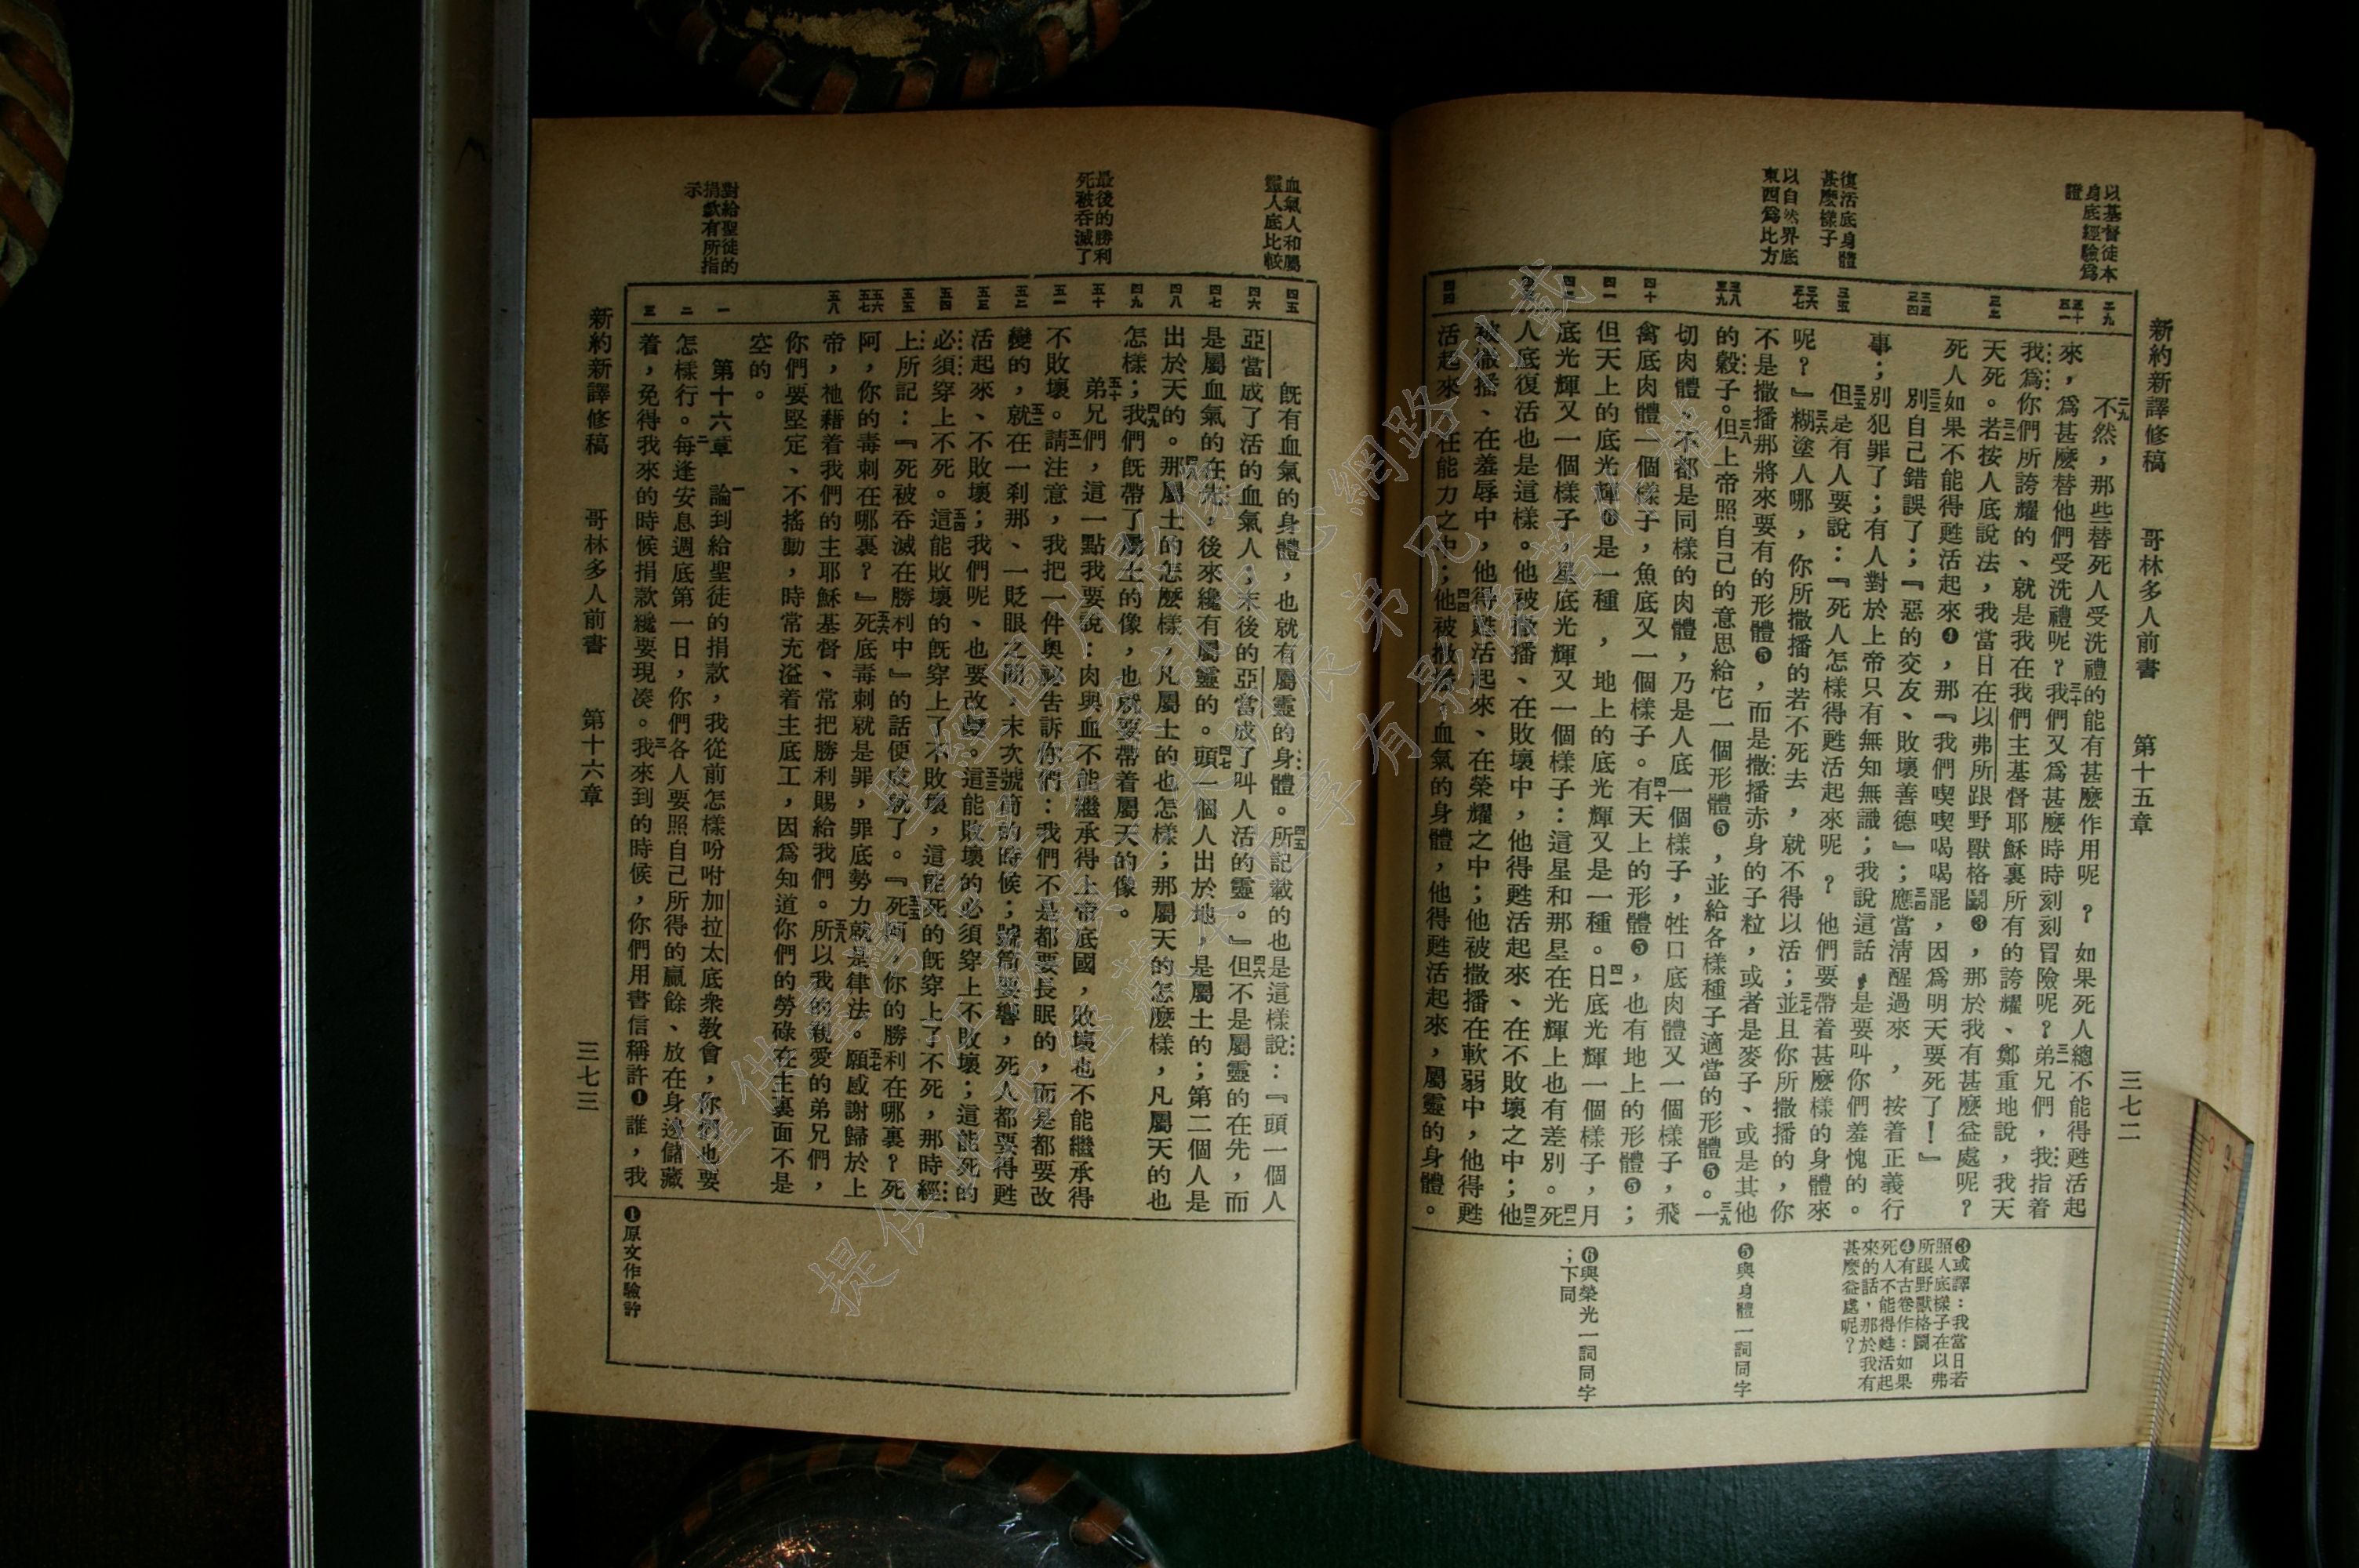 新約新譯修稿　哥林多人前書　第十五章　三七二
以基督徒本
身底經驗爲
證
復活底身體
甚麼樣子
以自然界底
東西爲比方
二九不然，那些替死人受洗禮的能有甚麼作用呢？如果死人總不能得甦活起
來，爲甚麼替他們受洗禮呢？三十我們又爲甚麼時時刻刻冒險呢？三一弟兄們，我指着
我爲你們所誇耀的、就是我在我們主基督耶穌裏所有的誇耀、鄭重地說，我天
天死。三二若按人底說法，我當日在以弗所跟野獸格鬭❸，那於我有甚麼益處呢？
死人如果不能得甦活起來❹，那『我們喫喫喝喝罷，因爲明天要死了！』
三三別自己錯誤了；『惡的交友、敗壞善德』；三四應當清醒過來，按着正義行
事；別犯罪了；有人對於上帝只有無知無識；我說這話，是要叫你們羞愧的。
三五但是有人要說：『死人怎樣得甦活起來呢？他們要帶着甚麼樣的身體來
呢？』三六糊塗人哪，你所撒播的若不死去，就不得以活；三七並且你所撒播的，你
不是撒播那將來要有的形體❺，而是撒播赤身的子粒，或者是麥子、或是其他
的穀子。三八但上帝照自己的意思給它一個形體❺，並給各樣種子適當的形體❺。三九一
切肉體、不都是同樣的肉體，乃是人底一個樣子，牲口底肉體又一個樣子，飛
禽底肉體一個樣子，魚底又一個樣子。四十有天上的形體❺，也有地上的形體❺；
但天上的底光輝❻是一種，地上的底光輝又是一種。四一日底光輝一個樣子，月
底光輝又一個樣子，星底光輝又一個樣子：這星和那星在光輝上也有差別。四二死
人底復活也是這樣。他被撒播、在敗壞中，他得甦活起來、在不敗壞之中；四三他
被撒播、在羞辱中，他得甦活起來、在榮耀之中；他被撒播在軟弱中，他得甦
活起來、在能力之中；四四他被撒播、血氣的身體，他得甦活起來，屬靈的身體。
❸或譯：我當日若
照人底樣子在以弗
所跟野獸格鬭
❹有古卷作：如果
死人不能得甦活起
來的話，那於我有
甚麼益處呢？
❺與身體一詞同字
❻與榮光一詞同字
；下同
血氣人和屬
靈人底比較
最後的勝利
死被吞滅了
對給聖徒的
捐獻有所指
示
既有血氣的身體，也就有屬靈的身體。四五所記載的也是這樣說：『頭一個人
亞當成了活的血氣人；末後的亞當成了叫人活的靈。』四六但不是屬靈的在先，而
是屬血氣的在先，後來纔有屬靈的。四七頭一個人出於地，是屬土的；第二個人是
出於天的。四八那屬土的怎麼樣，凡屬土的也怎樣；那屬天的怎麼樣，凡屬天的也
怎樣；四九我們既帶了屬土的像，也就要帶着屬天的像。
五十弟兄們，這一點我要說：肉與血不能繼承得上帝底國，敗壞也不能繼承得
不敗壞。五一請注意，我把一件奧祕告訴你們：我們不是都要長眠的，而是都要改
變的，五二就在一剎那、一眨眼之間，末次號筒的時候；號筒要響，死人都要得甦
活起來、不敗壞；我們呢、也要改變。五三這能敗壞的必須穿上不敗壞；這能死的
必須穿上不死。五四這能敗壞的既穿上了不敗壞，這能死的既穿上了不死，那時經
上所記：『死被吞滅在勝利中』的話便成就了。五五『死阿，你的勝利在哪裏？死
阿，你的毒刺在哪裏？』五六死底毒刺就是罪，罪底勢力就是律法。五七願感謝歸於上
帝，祂藉着我們的主耶穌基督、常把勝利賜給我們。五八所以我的親愛的弟兄們，
你們要堅定、不搖動，時常充溢着主底工，因爲知道你們的勞碌在主裏面不是
空的。
第十六章　一論到給聖徒的捐款，我從前怎樣吩咐加拉太底衆教會，你們也要
怎樣行。二每逢安息週底第一日，你們各人要照自己所得的贏餘、放在身邊儲藏
着，免得我來的時候捐款纔要現湊。三我來到的時候，你們用書信稱許❶誰，我
❶原文作驗許
新約新譯修稿　哥林多人前書　第十六章　三七三